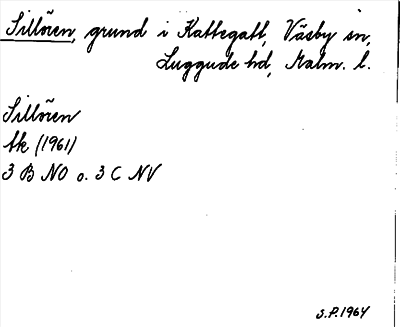 Sillören, grund i Kattegatt, Väsby sn,
Luggude hd, Malm. l.
Sillören
Ek (1961)
3 B NO o. 3 C NV
S.P. 1964